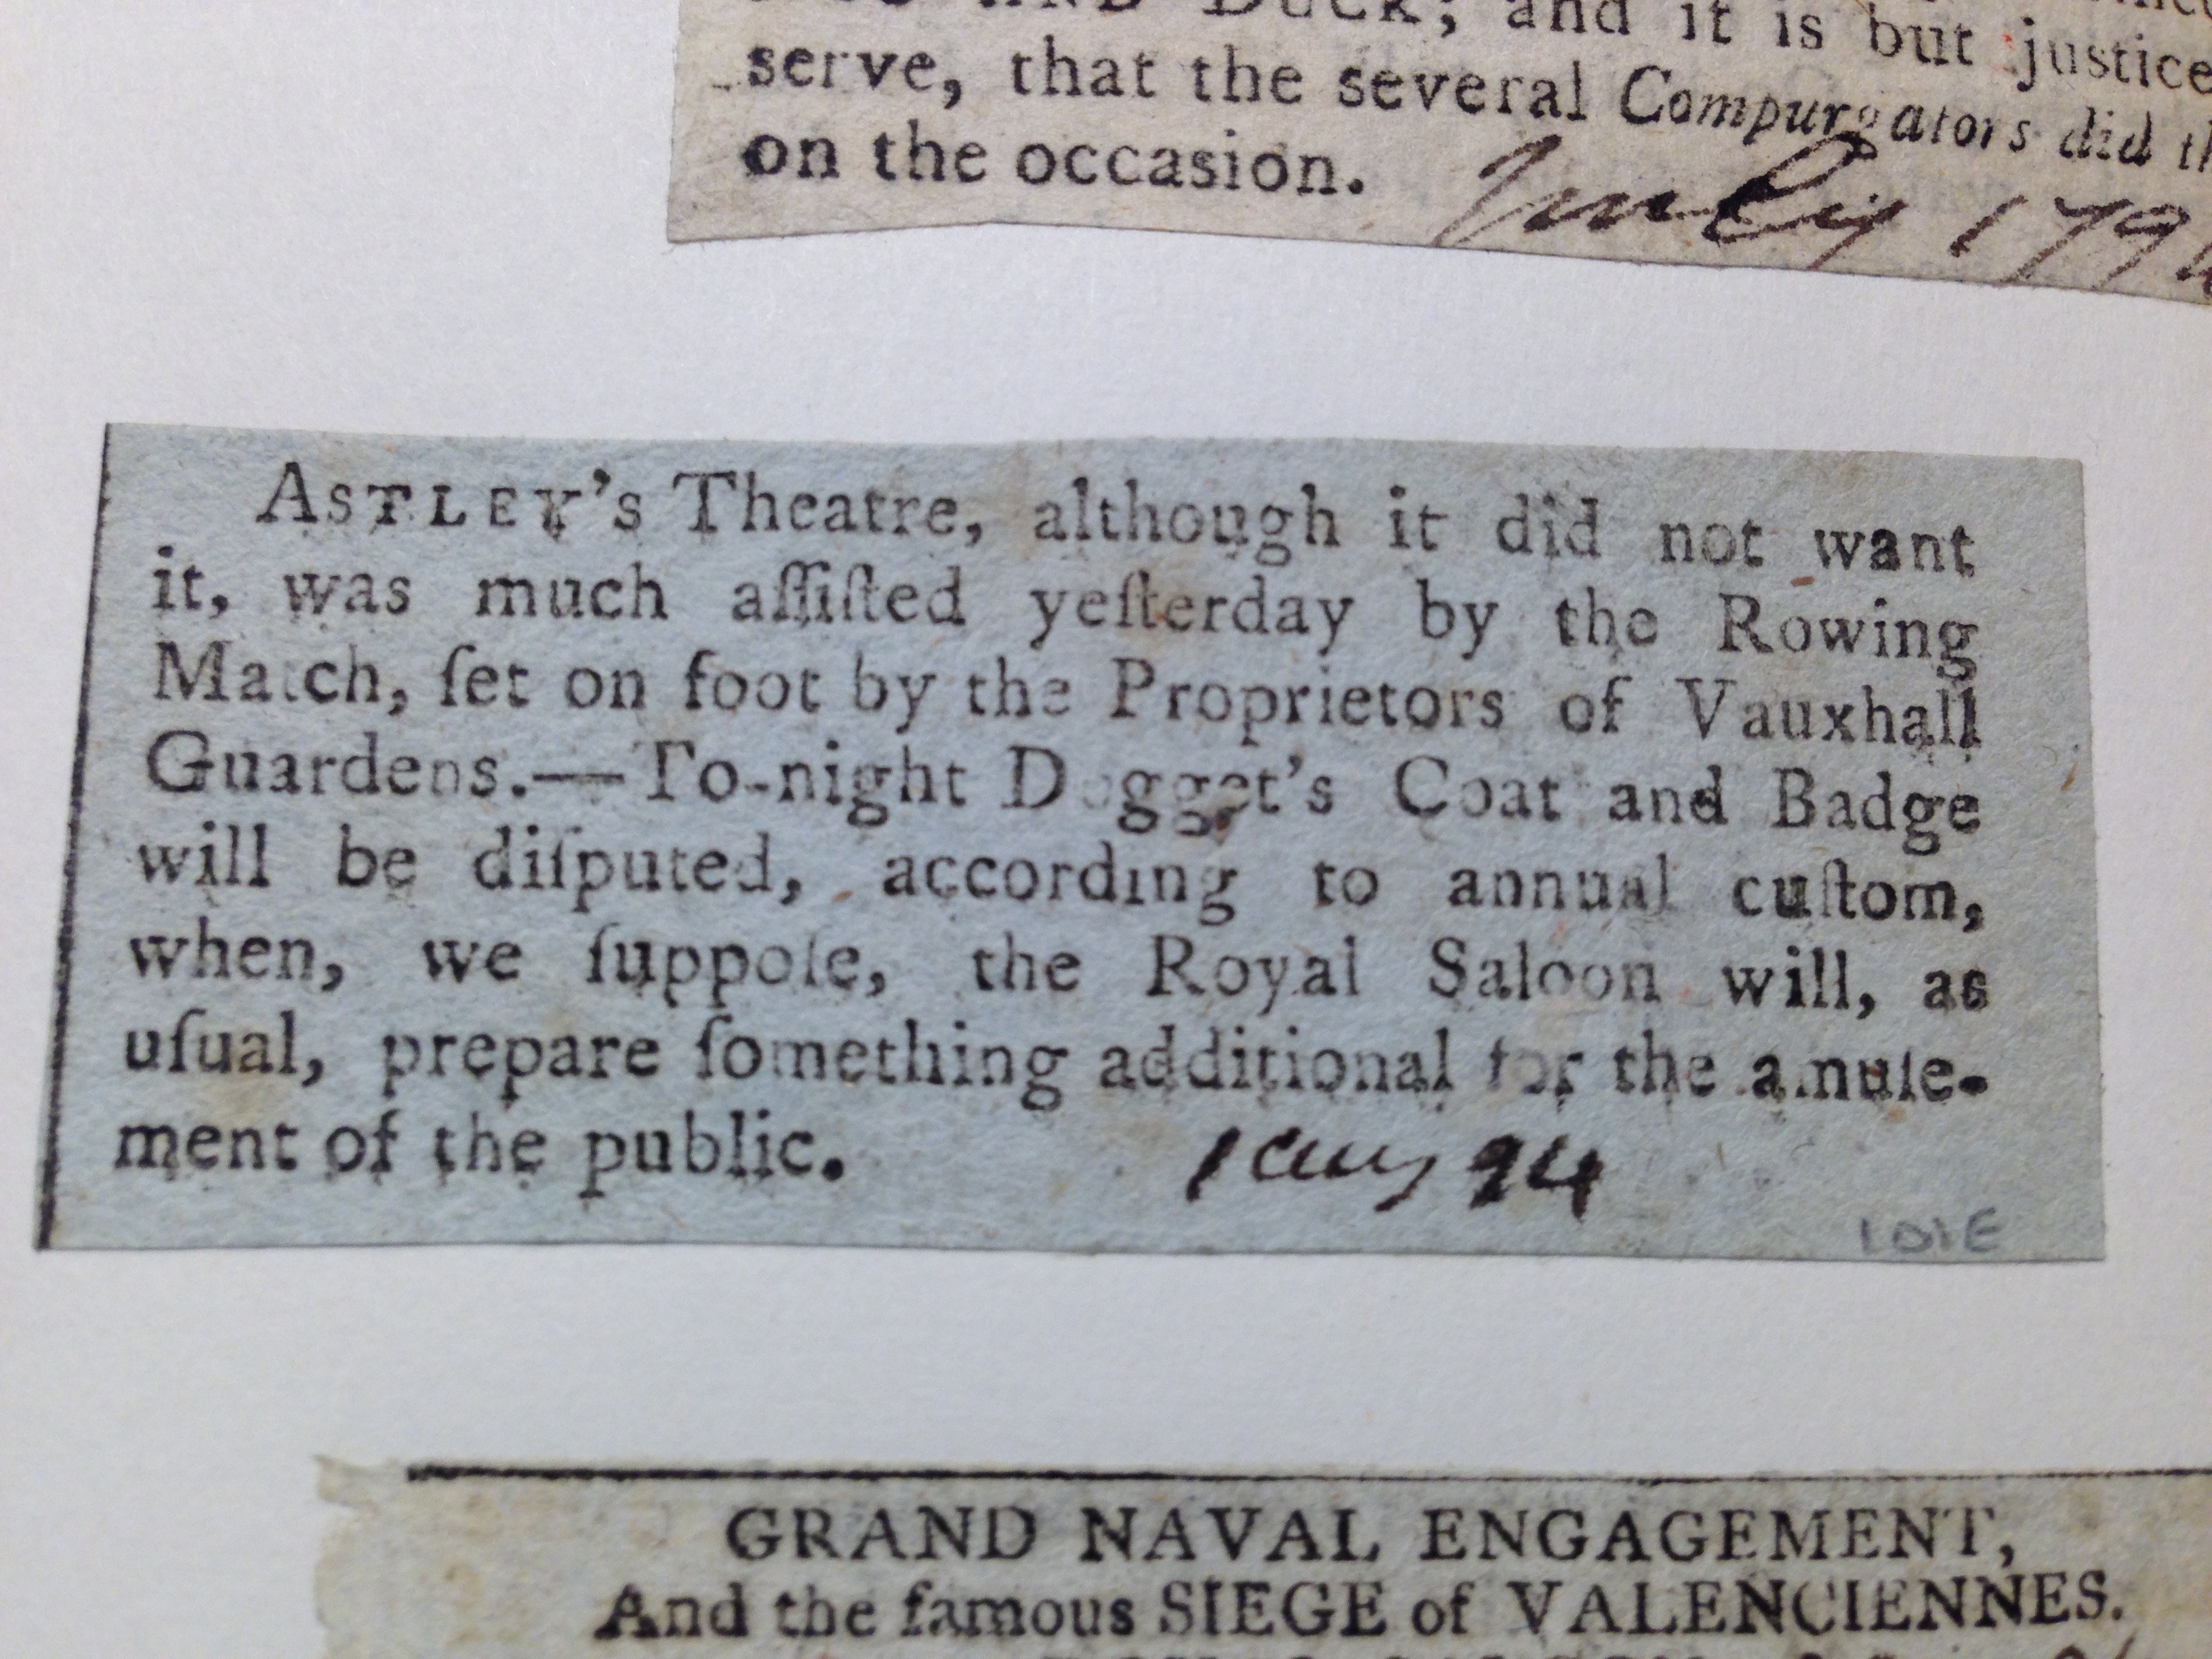 AND DUCK; and it is but justice
serve, that the several Compurgators did
on the occasion.
July 179
ASTLEY's Theatre, although it did not want
it, was much aſſiſted yeſterday by the Rowing
Match, ſet on foot by the Proprietors of Vauxhall
Guardens.—To-night Dogget's Coat and Badge
will be diſputed, according to annual cuſtom,
when, we ſuppoſe, the Royal Saloon will, as
uſual, prepare ſomething additional for the amuſe-
ment of the public.
1 Aug 94
101E
GRAND NAVAL ENGAGEMENT,
And the famous SIEGE of VALENCIENNES.